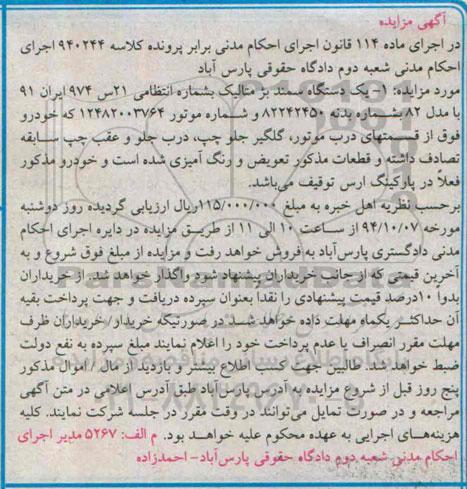 آگهی مزایده
در اجرای ماده ۱۱۴ قانون اجرای احکام مدنی برابر پرونده کلاسه ۹۴۰۲۴۴ اجرای
احکام مدنی شعبه دوم دادگاه حقوقی پارس آباد
مورد مزایده: ۱- یک دستگاه سمند بژ متالیک بشماره انتظامی ۲۱س ۹۷۴ ایران ۹۱
با مدل ۸۲ بشماره بدنه ۸۲۲۴۲۴۵۰ و شماره موتور ۱۲۴۸۲۰۰۳۷۶۴ که خودرو
فوق از قسمتهای درب موتور، گلگیر جلو چپ، درب جلو و عقب چپ سابقه
تصادف داشته و قطعات مذکور تعویض و رنگ آمیزی شده است و خودرو مذکور
فعلاً در پارکینگ ارس توقیف می‌باشد.
برحسب نظریه اهل خبره به مبلغ ۱۱۵/۰۰۰/۰۰۰ریال ارزیابی گردیده روز دوشنبه
مورخه ۹۴/۱۰/۰۷ از ساعت ۱۰ الی ۱۱ از طریق مزایده در دایره اجرای احکام
مدنی دادگستری پارس‌آباد به فروش خواهد رفت و مزایده از مبلغ فوق شروع و به
آخرین قیمتی که از جانب خریداران پیشنهاد شود واگذار خواهد شد. از خریداران
بدواً ۱۰درصد قیمت پیشنهادی را نقداً بعنوان سپرده دریافت و جهت پرداخت بقیه
آن حداکثر یکماه مهلت داده خواهد شد. در صورتیکه خریدار/ خریداران ظرف
مهلت مقرر انصراف یا عدم پرداخت خود را اعلام نمایند مبلغ سپرده به نفع دولت
ضبط خواهد شد. طالبین جهت کسب اطلاع بیشتر و بازدید از مال / اموال مذکور
پنج روز قبل از شروع مزایده به آدرس پارس‌آباد طبق آدرس اعلامی در متن آگهی
مراجعه و در صورت تمایل می‌توانند در وقت مقرر در جلسه شرکت نمایند. کلیه
هزینه‌های اجرایی به عهده محکوم علیه خواهد بود. م الف: ۵۲۶۷ مدیر اجرای
احکام مدنی شعبه دوم دادگاه حقوقی پارس‌آباد- احمدزاده
ParsNamadData